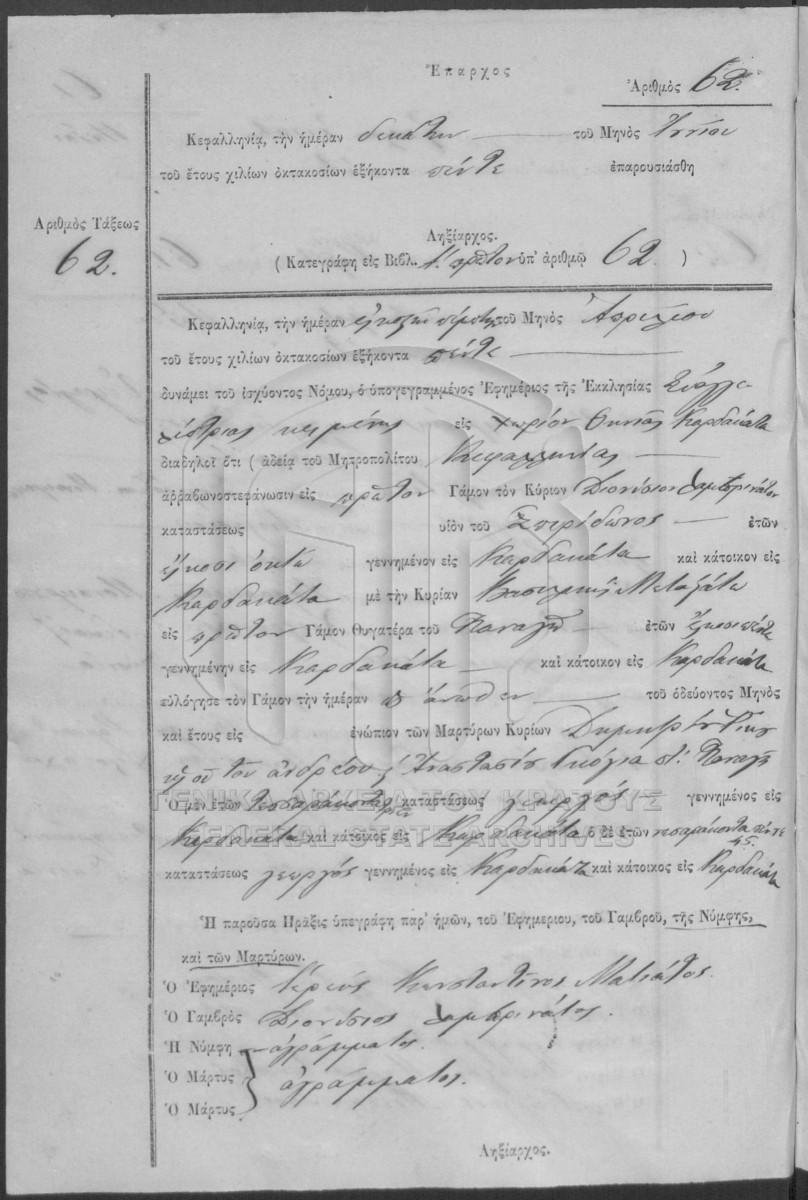 Ἔπαρχος
Ἀριθμὸς 62.
Κεφαλληνίᾳ, τὴν ἡμέραν δεκάτην τοῦ Μηνὸς
τοῦ ἔτους χιλίων ὀκτακοσίων ἑξήκοντα πέντε ἐπαρουσιάσθη
Ἀριθμὸς Τάξεως
62.
Ληξίαρχος.
( Κατεγράφη εἰς Βιβλ. πρῶτον ὑπ' ἀριθμῷ 62 )
Κεφαλληνίᾳ, τὴν ἡμέραν τοῦ Μηνὸς Ἀπριλίου
τοῦ ἔτους χιλίων ὀκτακοσίων ἑξήκοντα πέντε
δυνάμει τοῦ ἰσχύοντος Νόμου, ὁ ὑπογεγραμμένος Ἐφημέριος τῆς Ἐκκλησίας Εὐαγγε
λίστριας κειμένης εἰς χωρίον Θηνιᾶς Καρδακάτα
διαδηλοῖ ὅτι ( ἀδείᾳ τοῦ Μητροπολίτου Κεφαλληνίας
ἀῤῥαβωνοστεφάνωσιν εἰς πρῶτον Γάμον τὸν Κύριον Διονύσιον
καταστάσεως υἱὸν τοῦ Σπυρίδωνος ἐτῶν
εἴκοσι ὀκτὼ γεννημένον εἰς Καρδακάτα καὶ κάτοικον εἰς
Καρδακάτα μὲ τὴν Κυρίαν Βασιλικὴ Μεταξάτα
εἰς πρῶτον Γάμον Θυγατέρα τοῦ Παναγῆ ἐτῶν εἴκοσι πέντε
γεννημένην εἰς Καρδακάτα καὶ κάτοικον εἰς Καρδακάτα
εὐλόγησε τὸν Γάμον τὴν ἡμέραν ἄνωθεν τοῦ ὁδεύοντος Μηνὸς
καὶ ἔτους εἰς ἐνώπιον τῶν Μαρτύρων Κυρίων
τοῦ Ἀνδρέου Παναγῆ
Ὁ μὲν ἐτῶν τεσσαράκοντα καταστάσεως γεωργός γεννημένος εἰς
Καρδακάτα καὶ κάτοικος εἰς Καρδακάτα ὁ δὲ ἐτῶν τεσαράκοντα πέντε
45.
καταστάσεως γεωργός γεννημένος εἰς Καρδακάτα καὶ κάτοικος εἰς Καρδακάτα
Ἡ παροῦσα Πρᾶξις ὑπεγράφη παρ' ἡμῶν, τοῦ Ἐφημερίου, τοῦ Γαμβροῦ, τῆς Νύμφης,
καὶ τῶν Μαρτύρων.
Ὁ Ἐφημέριος Ἱερεύς Κωνσταντῖνος
Ὁ Γαμβρὸς Διονύσιος
Ἡ Νύμφη ἀγράμματος.
Ὁ Μάρτυς ἀγράμματος.
Ὁ Μάρτυς
Ληξίαρχος.
ΓΕΝΙΚΑ ΑΡΧΕΙΑ ΤΟΥ ΚΡΑΤΟΥΣ
GENERAL STATE ARCHIVES